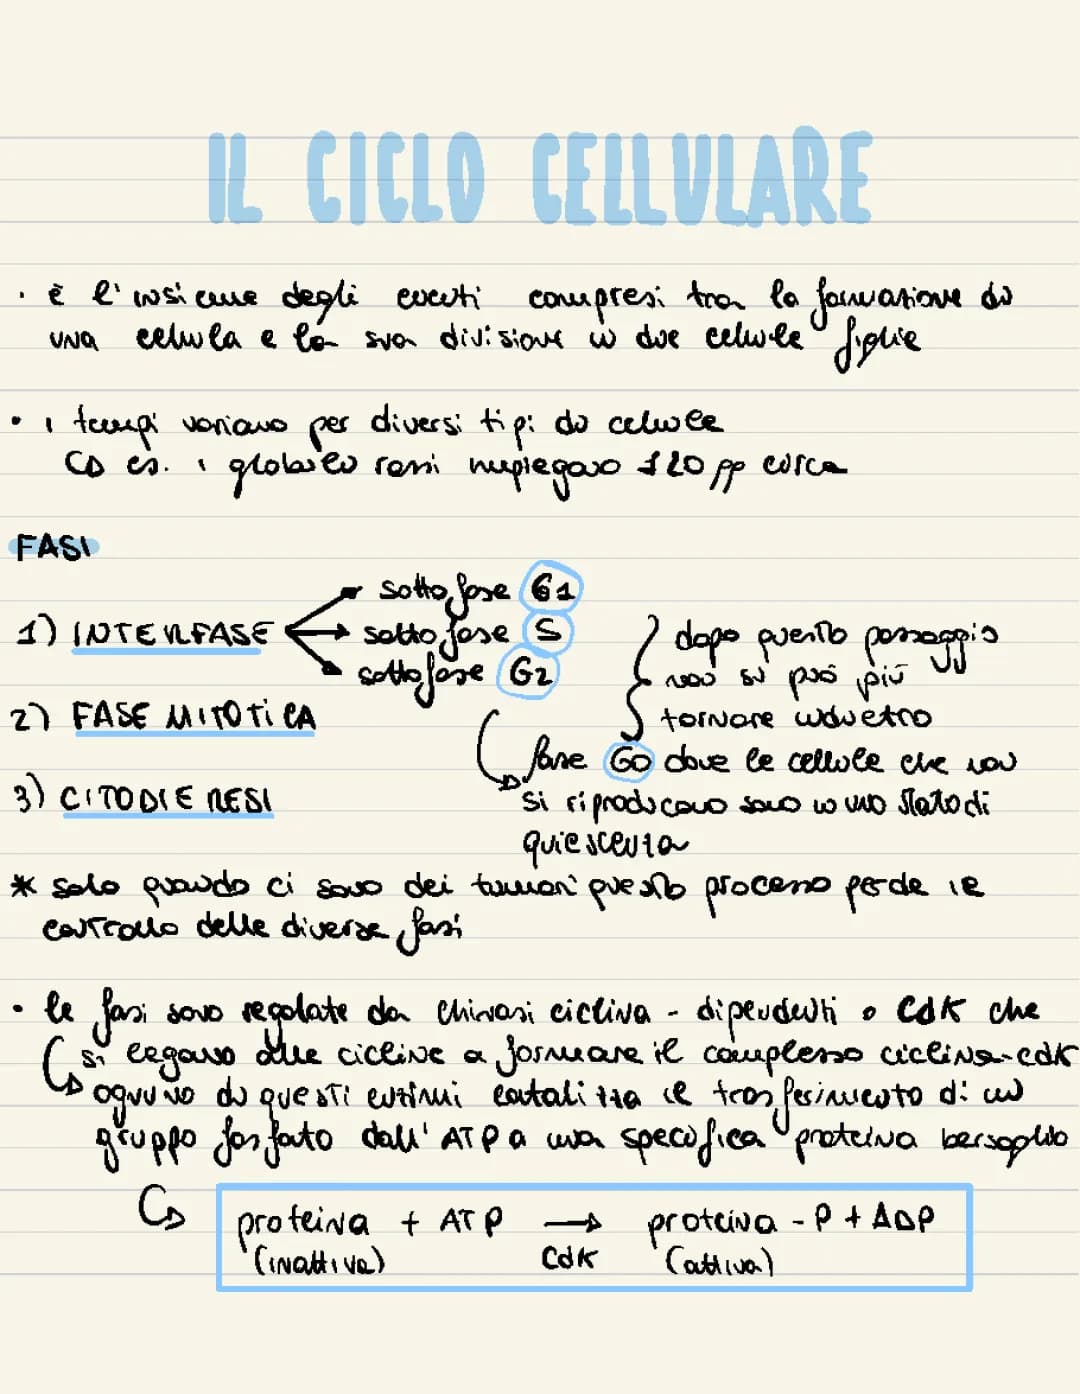 IL CICLO CELLULARE
• è l'insieme degli eventi compresi tra la formazione di
una cellula e la sua divisione in due cellule figlie
• i tempi variano per diversi tipi di cellule
↳ es. i globuli rossi impiegano 120 gg circa
FASI
sottofase G1
1) INTERFASE → sottofase S
sottofase G2
} dopo questo passaggio
non si può più
tornare indietro
2) FASE MITOTICA
↳ fase G0 dove le cellule che non
si riproducono sono in uno stato di
quiescenza
3) CITODIERESI
* solo quando ci sono dei tumori questo processo perde il
controllo delle diverse fasi
• le fasi sono regolate da chinasi ciclina-dipendenti o CdK che
↳ si legano alle cicline a formare il complesso ciclina-cdk
↳ ognuno di questi enzimi catalizza il trasferimento di un
gruppo fosfato dall'ATP a una specifica proteina bersaglio
↳ proteina + ATP → proteina - P + ADP
(inattiva) CdK (attiva)